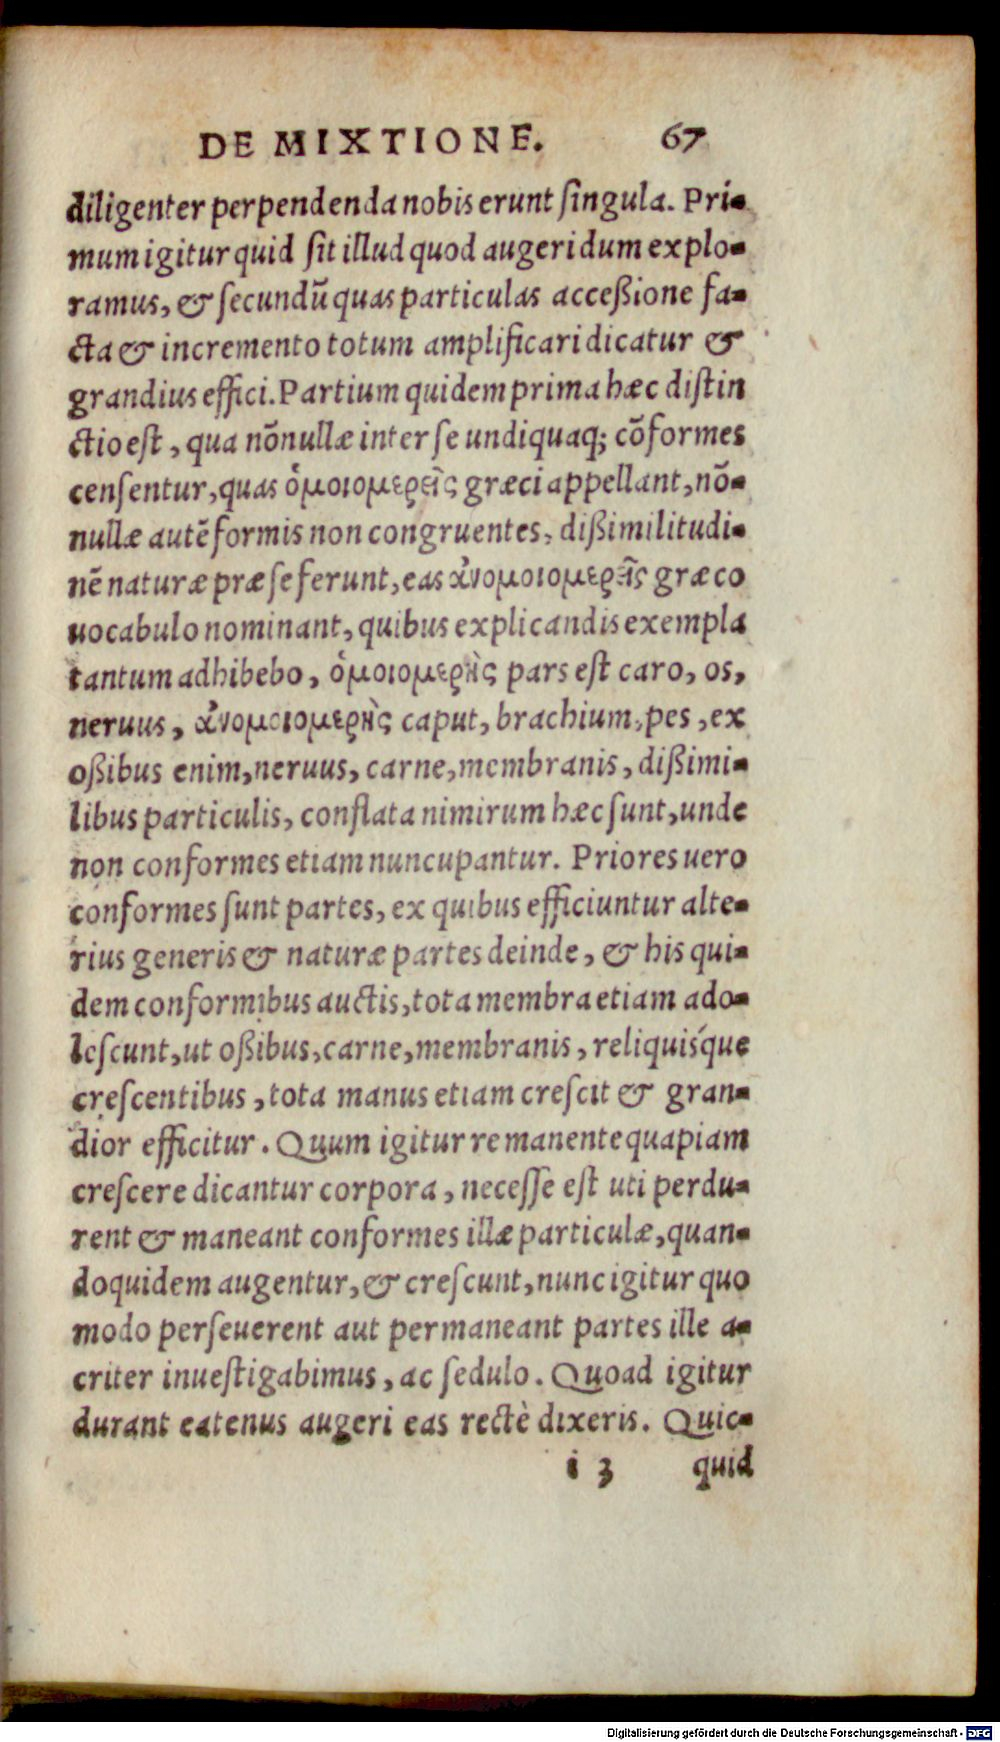 DE MIXTIONE. 67
diligenter perpendenda nobis erunt ſingula. Pri-
mum igitur quid ſit illud quod augeri dum explo-
ramus, & ſecundũ quas particulas acceßione fa-
cta & incremento totum amplificari dicatur &
grandius effici. Partium quidem prima hæc diſtin
ctio eſt, qua nõnullæ inter ſe undiquaq; cõformes
cenſentur, quas ὁμοιομερεῖς græci appellant, nõ-
nullæ autẽ formis non congruentes, dißimilitudi-
nẽ naturæ præ ſe ferunt, eas ἀνομοιομερεῖς græco
uocabulo nominant, quibus explicandis exempla
tantum adhibebo, ὁμοιομερὴς pars eſt caro, os,
neruus, ἀνομοιομερὴς caput, brachium, pes, ex
oßibus enim, neruus, carne, membranis, dißimi-
libus particulis, conflata nimirum hæc ſunt, unde
non conformes etiam nuncupantur. Priores uero
conformes ſunt partes, ex quibus efficiuntur alte-
rius generis & naturæ partes deinde, & his qui-
dem conformibus auctis, tota membra etiam ado-
leſcunt, ut oßibus, carne, membranis, reliquiſque
creſcentibus, tota manus etiam creſcit & gran-
dior efficitur. Quum igitur re manente quapiam
creſcere dicantur corpora, neceſſe eſt uti perdu-
rent & maneant conformes illæ particulæ, quan-
doquidem augentur, & creſcunt, nunc igitur quo
modo perſeuerent aut permaneant partes ille a-
criter inueſtigabimus, ac ſedulo. Quoad igitur
durant eatenus augeri eas rectè dixeris. Quic-
i 3 quid
Digitalisierung gefördert durch die Deutsche Forschungsgemeinschaft - DFG